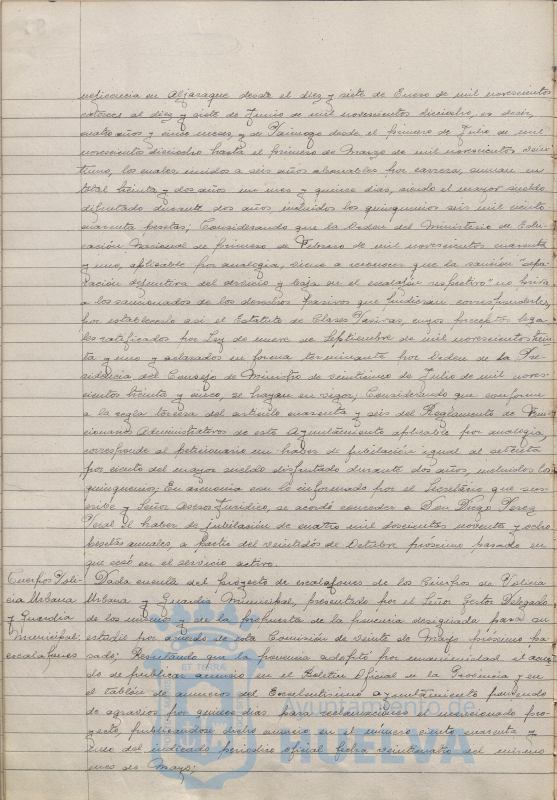 neficencia en Aljaraque desde el diez y siete de Enero de mil novecientos
catorce al diez y siete de Junio de mil novecientos dieciocho, es decir,
cuatro años y cinco meses, y de Paimogo desde el primero de Julio de mil
novecientos dieciocho hasta el primero de Marzo de mil novecientos vein-
tiuno, los cuales unidos a seis años abonables por carrera, suman en
total treinta y dos años un mes y quince días, siendo el mayor sueldo
disfrutado durante dos años incluidos los quinquenios seis mil ciento
cuarenta pesetas; Considerando que la Orden del Ministerio de Edu-
cación Nacional de primero de Febrero de mil novecientos cuarenta
y uno, aplicable por analogía, viene a reconocer que la sanción "sepa-
ración definitiva del servicio y baja en el escalafón respectivo" no priva
a los sancionados de los derechos pasivos que pudieran corresponderles,
por establecerlo así el Estatuto de Clases Pasivas, cuyos preceptos lega-
les ratificados por Ley de nueve de Septiembre de mil novecientos trein-
ta y uno y aclarados en forma terminante por Orden de la Pre-
sidencia del Consejo de Ministros de veintiuno de Julio de mil nove-
cientos treinta y cinco, se hayan en vigor; Considerando que conforme
a la regla tercera del artículo cuarenta y seis del Reglamento de Fun-
cionarios Administrativos de este Ayuntamiento aplicable por analogía,
corresponde al peticionario un haber de jubilación igual al setenta
por ciento del mayor sueldo disfrutado durante dos años, incluidos los
quinquenios; En armonía con lo informado por el Secretario que sus-
cribe y Señor Asesor Jurídico, se acordó conceder a Don Diego Perez
Peral el haber de jubilación de cuatro mil doscientas noventa y ocho
pesetas anuales, a partir del veintidós de Octubre próximo pasado en
que cesó en el servicio activo.
Cuerpos Poli- Dada cuenta del proyecto de escalafones de los Cuerpos de Policía
cia Urbana Urbana y Guardia Municipal, presentado por el Señor Gestor Delegado
y Guardia de los mismos y de la propuesta de la ponencia designada para su
Municipal: estudio por acuerdo de esta Comisión de veinte de Mayo próximo pa-
escalafones sado; Resultando que la ponencia adoptó por unanimidad el acuer-
do de publicar anuncio en el Boletín Oficial de la Provincia y en
el tablón de anuncios del Excelentísimo Ayuntamiento
de agravios por quince días para reclamaciones el mencionado pro-
yecto, publicándose dicho anuncio en el número ciento cuarenta y
del indicado periódico oficial fecha veinticuatro del mismo
mes de Mayo;
ET TERRÆ
Ayuntamiento de
HUELVA